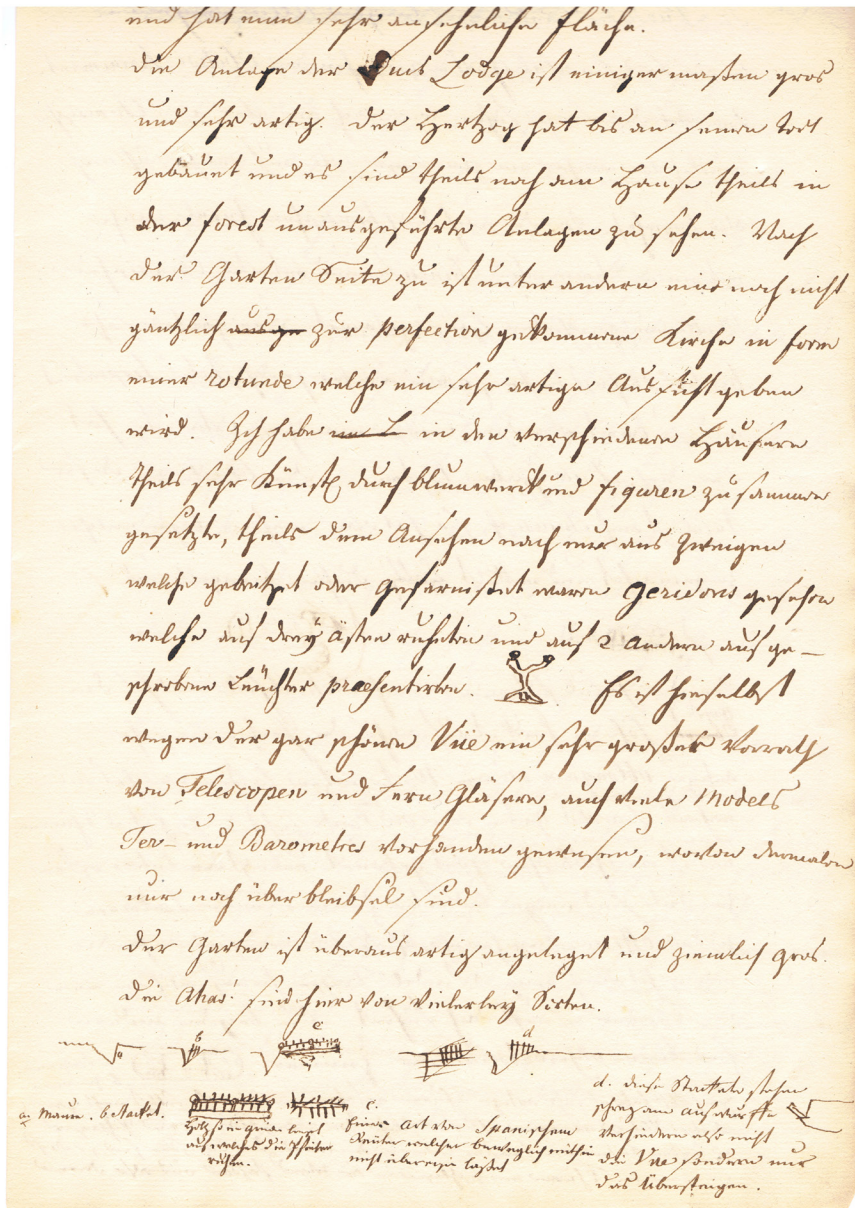 und hat eine sehr ansehnliche Fläche.
Die Anlage der Lodge ist einiger maßen gros
und sehr artig. Der Hertzog hat bis an seinen Tod
gebauet und es sind theils noch am Hause theils in
der forest unausgeführte Anlagen zu sehen. Nach
der Garten Seite zu ist unter andern eine noch nicht
gäntzlich ausge zur perfection gekommene Kirche in form
einer rotunde welche ein sehr artige Aussicht geben
wird. Ich habe im L in den verschiedenen Häusern
theils sehr Künstl. durch blumwerck und figuren zusammen
gesetzte, theils dem Ansehen nach nur aus Zweigen
welche gebeitzet oder gefarnißet waren geridons gesehen
welche auf drey ästen ruheten und auf 2 andern aufge-
schrobene Leuchter praesentirten. Es ist hieselbst
wegen der gar schönen Vüe ein sehr großer Vorrath
von Telescopen und Fern Gläsern, auch viele Models
Ter- und Barometres vorhanden gewesen, wovon dermalen
nur noch überbleibsel sind.
Der Garten ist überaus artig angeleget und ziemlich gros.
Die Ahas! sind hier von vielerley Sorten.
a b c d
a. Maur. b Stacket.
Holtz so in quer liegt
auf welches die Pfeiler
ruhen.
c.
Einer Art von Spanischem
Reuter welcher beweglich mithin
nicht übersein läßet
d. diese Stackete stehen
schreg am Aufwurffe
verhindern also nicht
die Vue sondern nur
das Übersteigen.